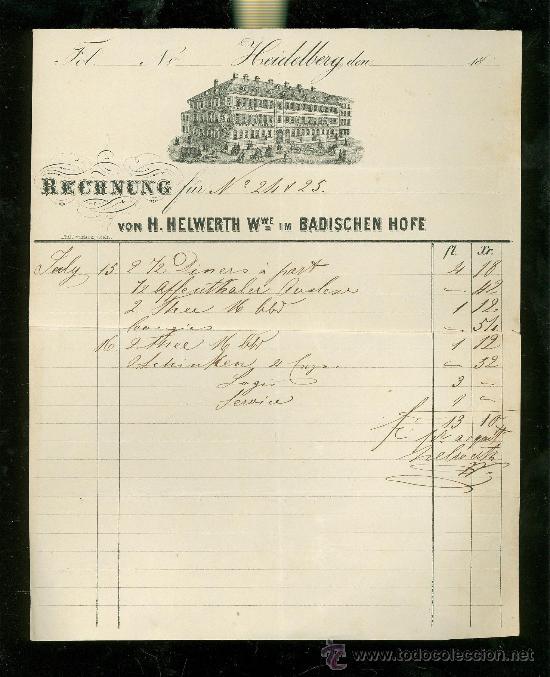 Fol. No Heidelberg, den 18
RECHNUNG für No 24 & 25.
VON H. HELWERTH WWE IM BADISCHEN HOFE
fl. Xr.
July 15 2 1/2 Diners à part 4 18
1/2 Affenthaler Auslese – 42
2 Thee 1 12
bougies – 54
16 2 Thee 1 12
Schinken – 52
Logis 3 –
Service 1 –
fl. 13 10
pr acquit
Helwerth
todocoleccion
www.todocoleccion.net